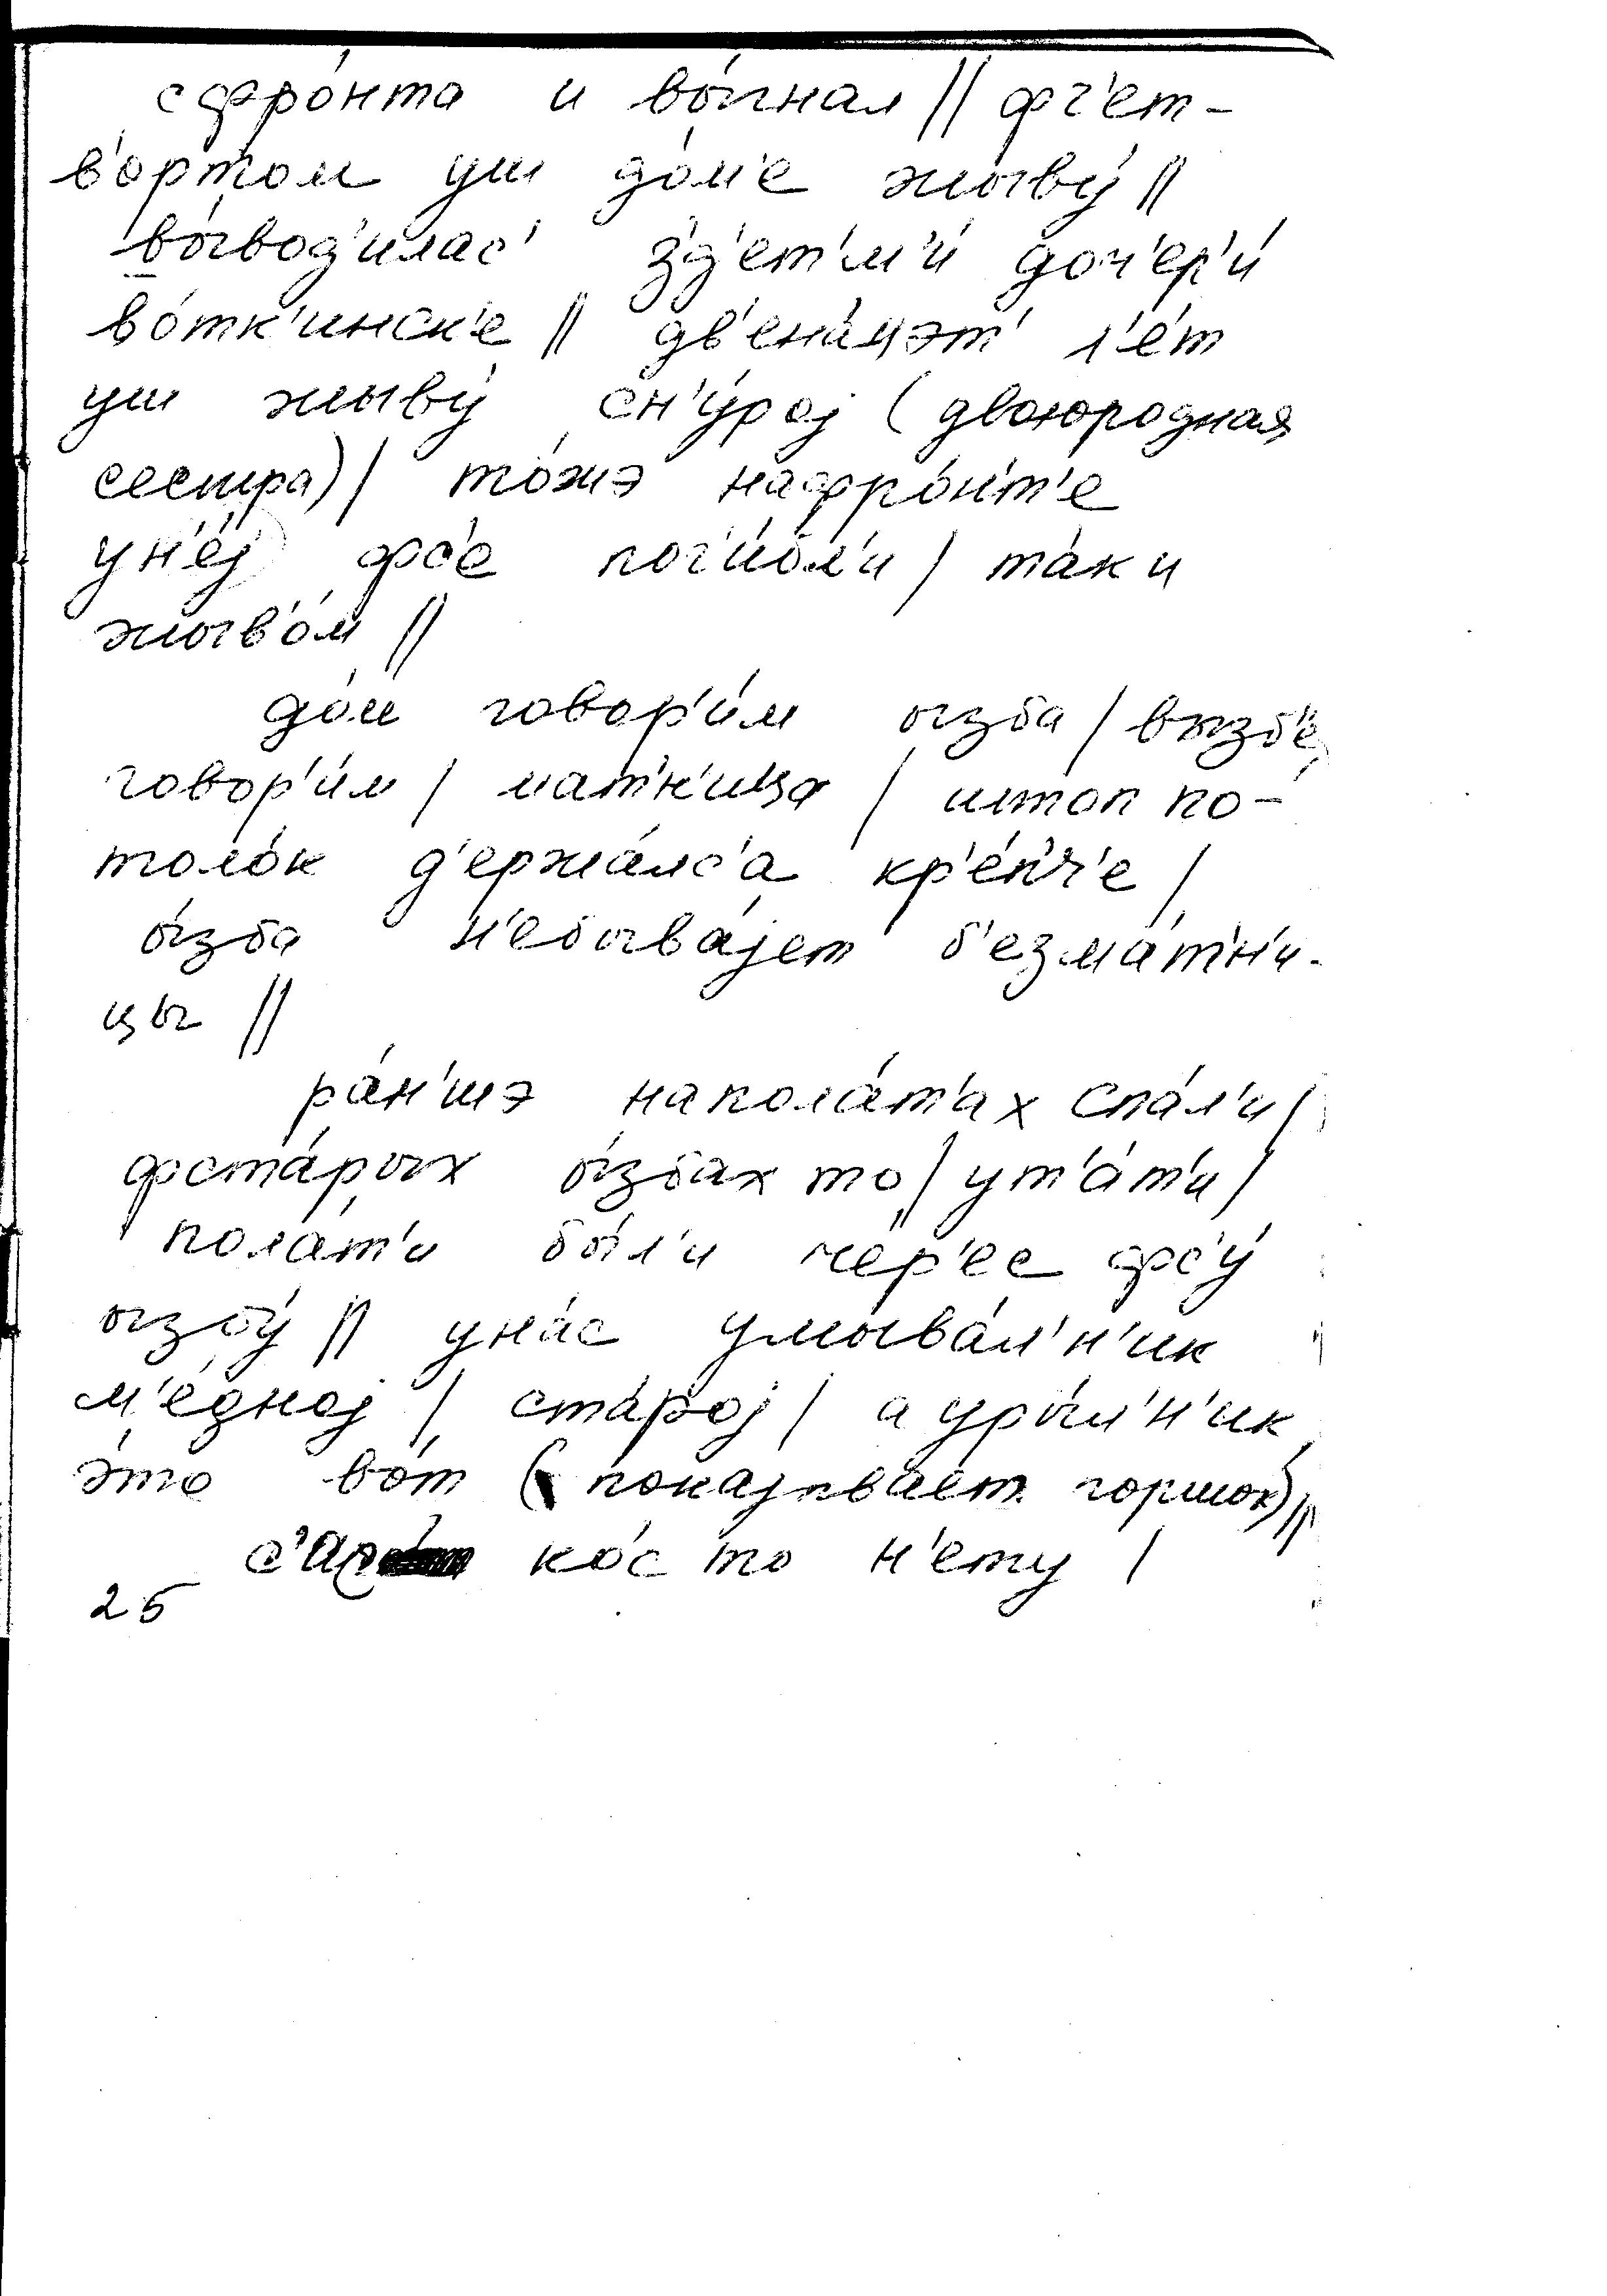 сфро́нта и вы́гнал // фч'ет-
в'о́ртом уш до́м'е жыву́ //
вы́вод'илас' з'д'ет'м'и́ доч'ер'и́
во́тк'инск'е // дв'ена́цэт' л'е́т
уш жыву́ сн'у́рој (двоюродная
сестра) / то́жэ нафро́н'т'е
ун'е́ј фс'е пог'и́бл'и / та́к и
жыв'о́м //
до́м говор'и́м ызба / вызб'е́
говор'и́м / мат'н'ица / штоп по-
толо́к д'ержа́лс'а кр'е́пч'е /
ы́зба н'ебыва́јет б'езма́т'н'и-
цы //
ра́н'шэ напола́т'ах спа́л'и /
фста́рых ы́збах то / ут'а́т'и /
пола́т'и бы́л'и че́р'ес фс'у́
ызбу́ // уна́с умыва́л'н'ик
м'е́дној / ста́рој / а уры́л'н'ик
э́то во́т (показывает горшок) //
ко́с то н'ету /
25